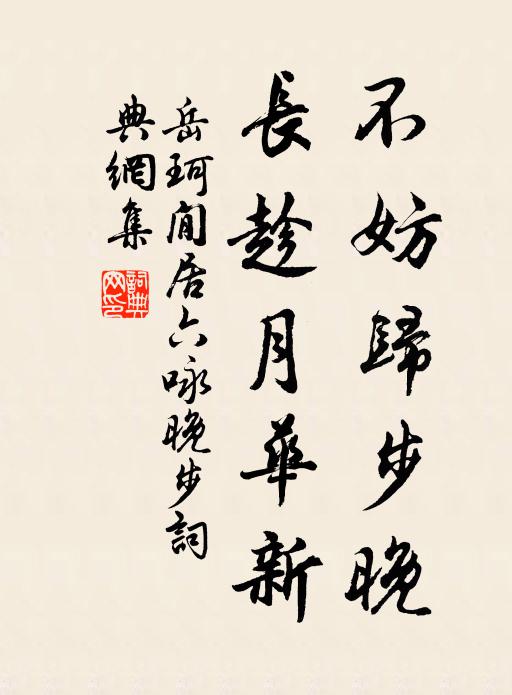 不妨歸步晚
長趁月華新
岳珂閒居六咏晚步詞
典網集
詞典
网印